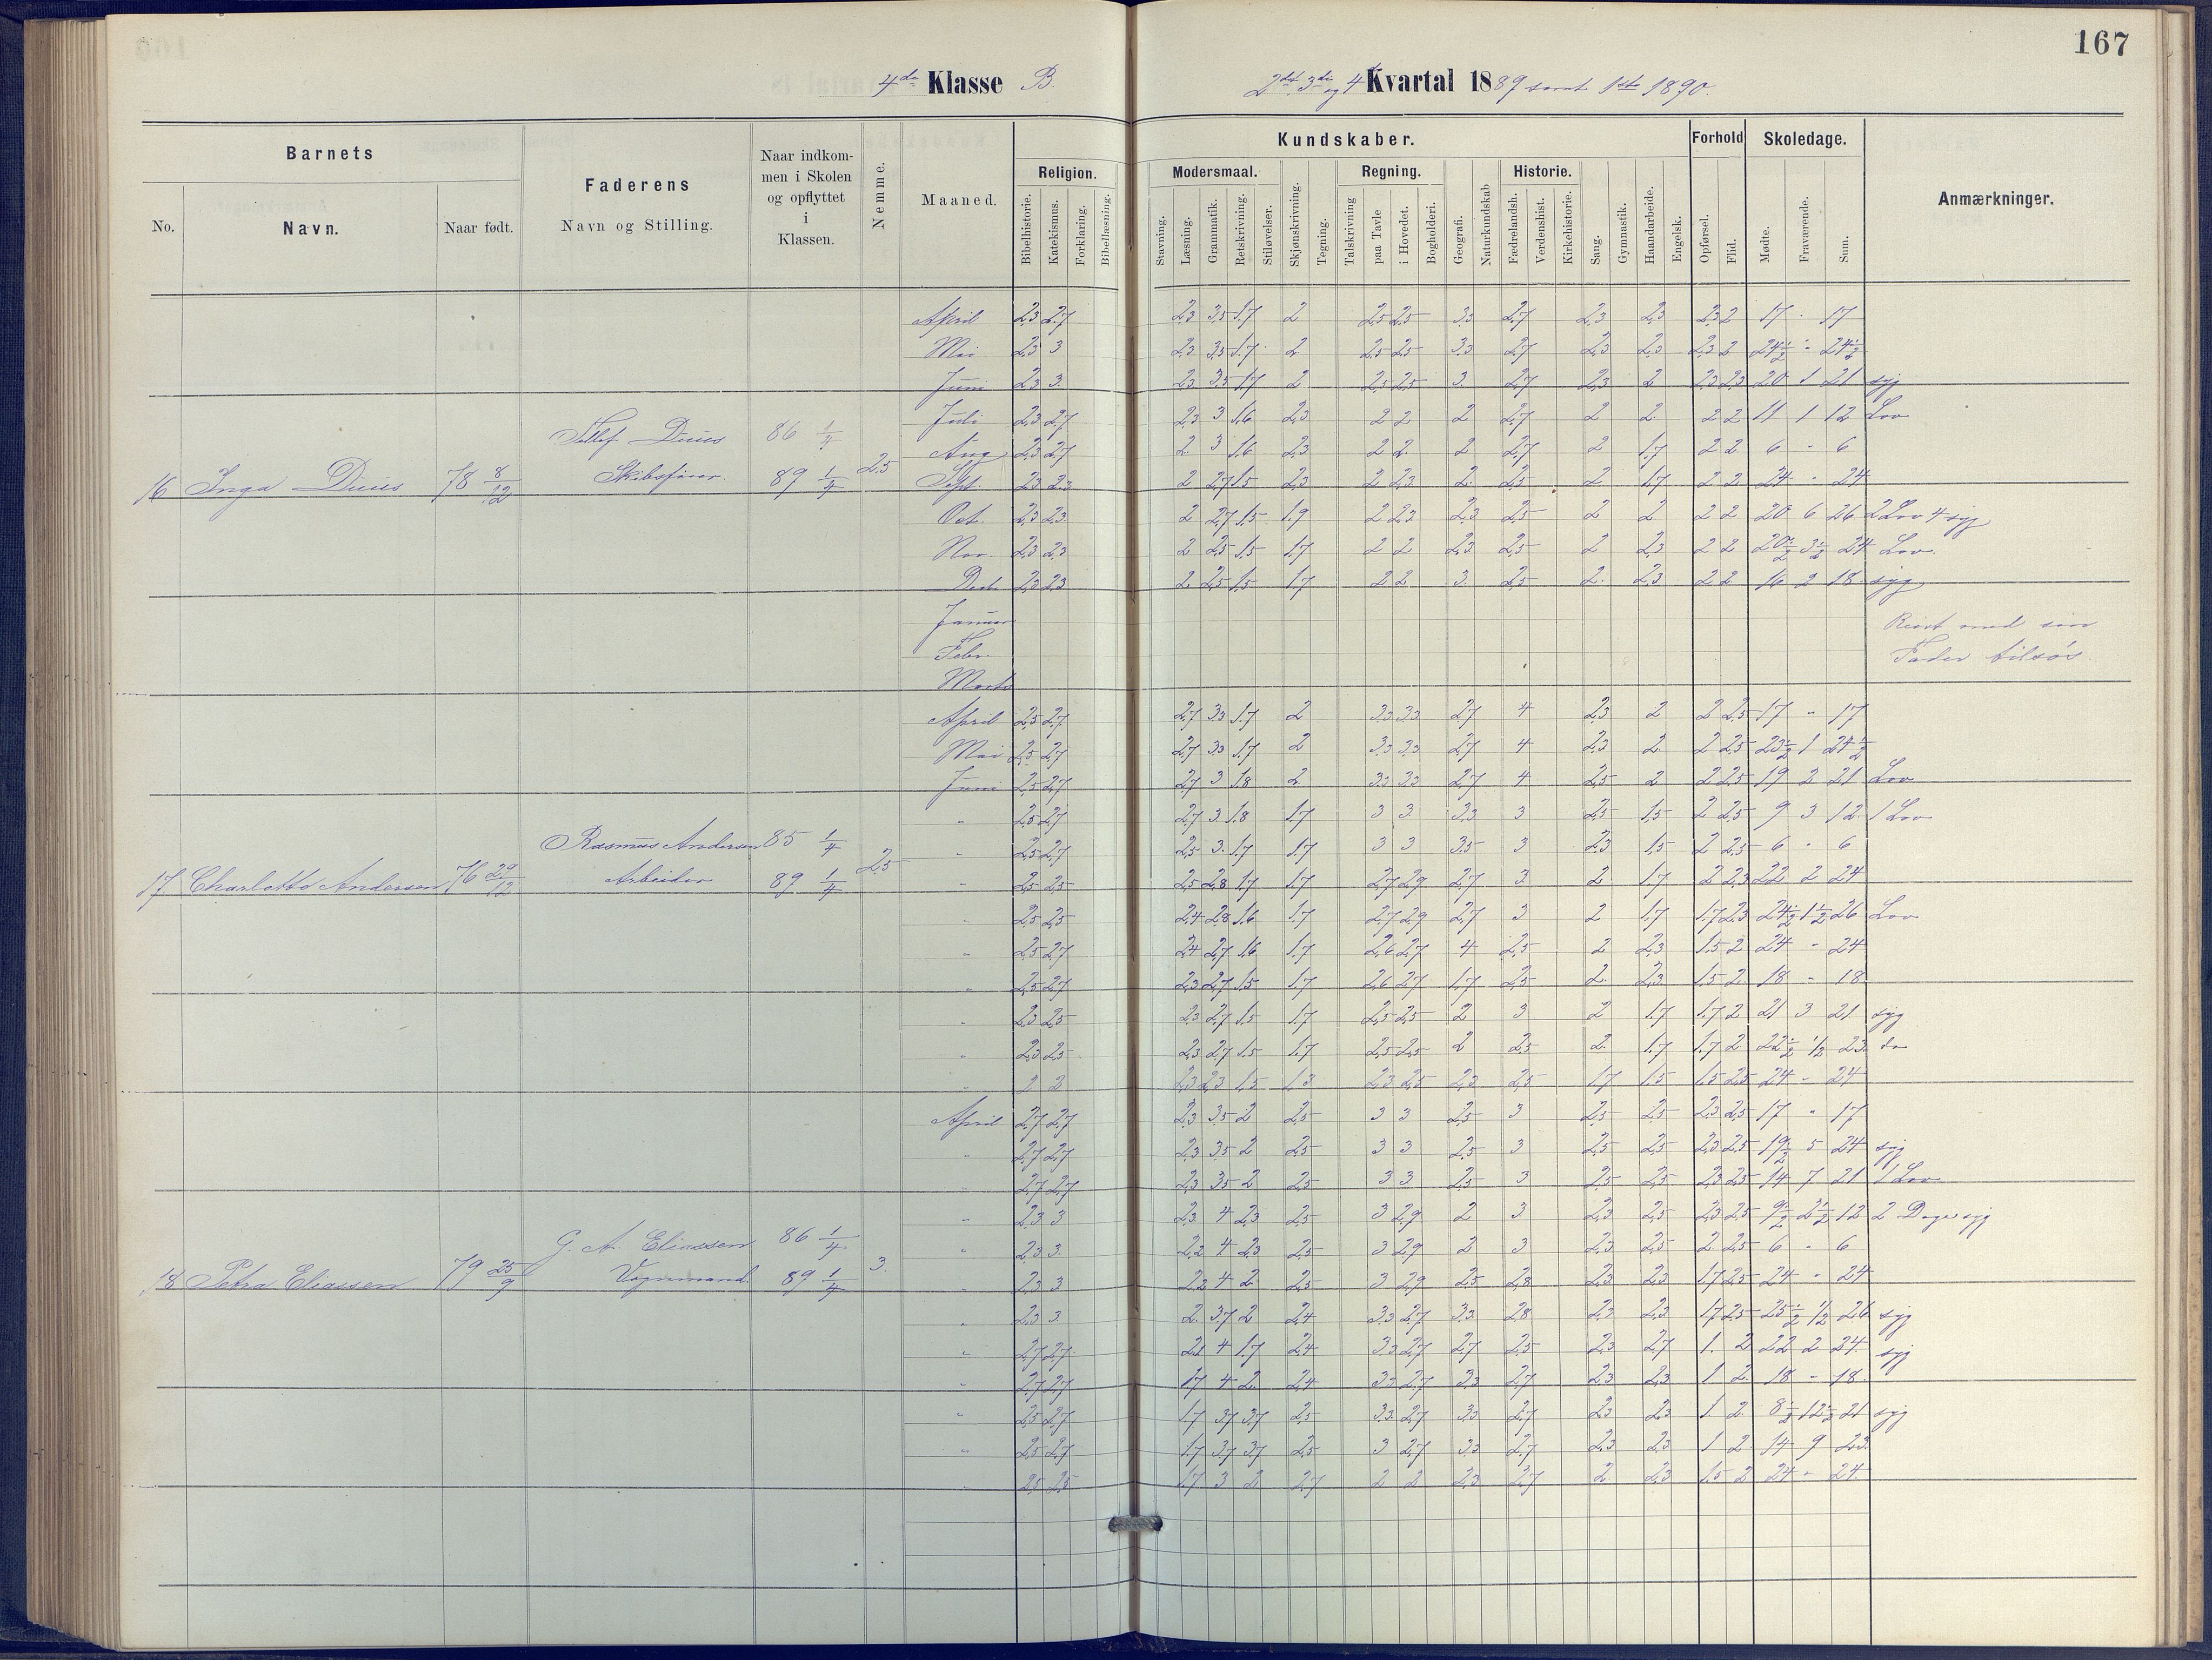 167
4de Klasse B.
2det 3die og 4de Kvartal 1889 samt 1ste 1890.
Barnets
No.
Navn.
Naar født.
Faderens
Navn og Stilling.
Naar indkom-
men i Skolen
og opflyttet
i
Klassen.
Nemme.
Maaned.
Kundskaber.
Religion.
Bibelhistorie.
Katekismus.
Forklaring.
Bibellæsning.
Modersmaal.
Stavning.
Læsning.
Grammatik.
Retskrivning.
Stiløvelser.
Skjønskrivning.
Tegning.
Regning.
Talskrivning
paa Tavle
i Hovedet.
Bogholderi.
Geografi.
Naturkundskab
Historie.
Fædrelandsh.
Verdenshist.
Kirkehistorie.
Sang.
Gymnastik.
Haandarbeide.
Engelsk.
Forhold
Opførsel.
Flid.
Skoledage.
Mødte.
Fraværende.
Sum.
Anmærkninger.
April 2,3 2,7 2,3 3,5 1,7 2 2,5 2,5 3,3 2,7 2,3 2,3 2,3 2 17 - 17
Mai 2,3 3 2,3 3,5 1,7 2 2,5 2,5 3,3 2,7 2,3 2,3 2,3 2 24½ - 24½
Juni 2,3 3 2,3 3,5 1,7 2 2,5 2,5 3 2,7 2,3 2 2,3 2,3 20 1 21 syg
Juli 2,3 2,7 2,3 3 1,6 2,3 2 2 2 2,7 2 2 2 2 11 1 12 Lov
Aug 2,3 2,7 2 3 1,6 2,3 2 2 2 2,7 2 1,7 2 2 6 - 6
16 Inga Duus 78 8/12 Duus Skibsfører 86 1/4 89 1/4 2,5 Sept. 2,3 2,3 2 2,7 1,5 2,3 2 2,3 2 2,5 2 1,7 2 2 24 - 24
Oct. 2,3 2,3 2 2,7 1,5 1,9 2 2,3 2,3 2,5 2 2 2 2 20 6 26 2 Lov 4 syg
Nov. 2,3 2,3 2 2,5 1,5 1,7 2 2 2,3 2,5 2 2,3 2 2 20½ 3½ 24 Lov.
Decb. 2,3 2,3 2 2,5 1,5 1,7 2 2 3 2,5 2 2,3 2 2 16 2 18 syg
Januar Reist med sin
Febr. Fader tilsøs.
Marts
April 2,5 2,7 2,7 3,3 1,7 2 3,3 3,3 2,7 4 2,3 2 2 2,5 17 - 17
Mai 2,5 2,7 2,7 3,3 1,7 2 3,3 3,3 2,7 4 2,3 2 2 2,5 23½ 1 24½
Juni 2,5 2,7 2,7 3 1,8 2 3,3 3,3 2,7 4 2,5 2 2 2,5 19 2 21 Lov
" 2,5 2,7 2,7 3 1,8 1,7 3 3 3,3 3 2,5 1,5 2 2,5 9 3 12 1 Lov
" 2,5 2,7 2,5 3 1,7 1,7 3 3 3,5 3 2,3 1,5 2 2,5 6 - 6
17 Charlotte Andersen 76 29/12 Rasmus Andersen Arbeider 85 1/4 89 1/4 2,5 " 2,5 2,5 2,5 2,8 1,7 1,7 2,7 2,9 2,7 3 2 1,7 2 2,3 22 2 24
" 2,5 2,5 2,4 2,8 1,6 1,7 2,7 2,9 2,7 3 2 1,7 1,7 2,3 24½ 1½ 26 Lov
" 2,5 2,7 2,4 2,7 1,6 1,7 2,6 2,7 4 2,5 2 2,3 1,5 2 24 - 24
" 2,5 2,7 2,3 2,7 1,5 1,7 2,6 2,7 1,7 2,5 2 2,3 1,5 2 18 - 18
" 2,3 2,5 2,3 2,7 1,5 1,7 2,5 2,5 2 3 2 1,7 1,7 2 21 3 21 syg
" 2,3 2,5 2,3 2,7 1,5 1,7 2,5 2,5 2 2,5 2 1,7 1,7 2 22½ ½ 23 do
" 2 2 2,3 2,3 1,5 1,3 2,3 2,5 2,3 2,5 1,7 1,5 1,5 2,5 24 - 24
April 2,7 2,7 2,3 3,5 2 2,5 3 3 2,5 3 2,5 2,5 2,3 2,5 17 - 17
" 2,7 2,7 2,3 3,5 2 2,5 3 3 2,5 3 2,5 2,5 2,3 2,5 19½ 5 24 syg
" 2,7 2,7 2,3 3,5 2 2,5 3 3 2,5 3 2,5 2,5 2,3 2,5 14 7 21 1 Lov
" 2,3 3 2,3 4 2,3 2,5 3 2,9 2 3 2,3 2,5 2,3 2,5 9½ 2½ 12 2 Dage syg
" 2,3 3 2,2 4 2,3 2,5 3 2,9 2 3 2,3 2,5 2 2,5 6 - 6
18 Petra Eliassen 79 25/9 G. A. Eliassen Vognmand. 86 1/4 89 1/4 3. " 2,3 3 2,2 4 2 2,5 3 2,9 2,5 2,8 2,3 2,3 1,7 2,5 24 - 24
" 2,3 3 2 3,7 2 2,4 3,3 2,7 3,3 2,8 2,3 2,3 1,7 2,5 25½ ½ 26 syg
" 2,7 2,7 2,1 4 1,7 2,4 3,3 2,7 2,7 2,5 2,3 2,7 1 2 22 2 24 syg
" 2,7 2,7 1,7 4 2 2,4 3,3 2,7 3,3 2,7 2,3 2,3 1 2 18 - 18
" 2,5 2,7 1,7 3,7 3,7 2,5 3,3 2,7 3,3 2,7 2,3 2,3 1 2 8½ 12½ 21 syg
" 2,5 2,7 1,7 3,7 3,7 2,5 3 2,7 3,3 2,7 2,3 2,3 1 2 14 9 23
" 2,5 2,5 1,7 3 2 2,7 2 2 2,3 2,7 2 2,3 1,5 2 24 - 24